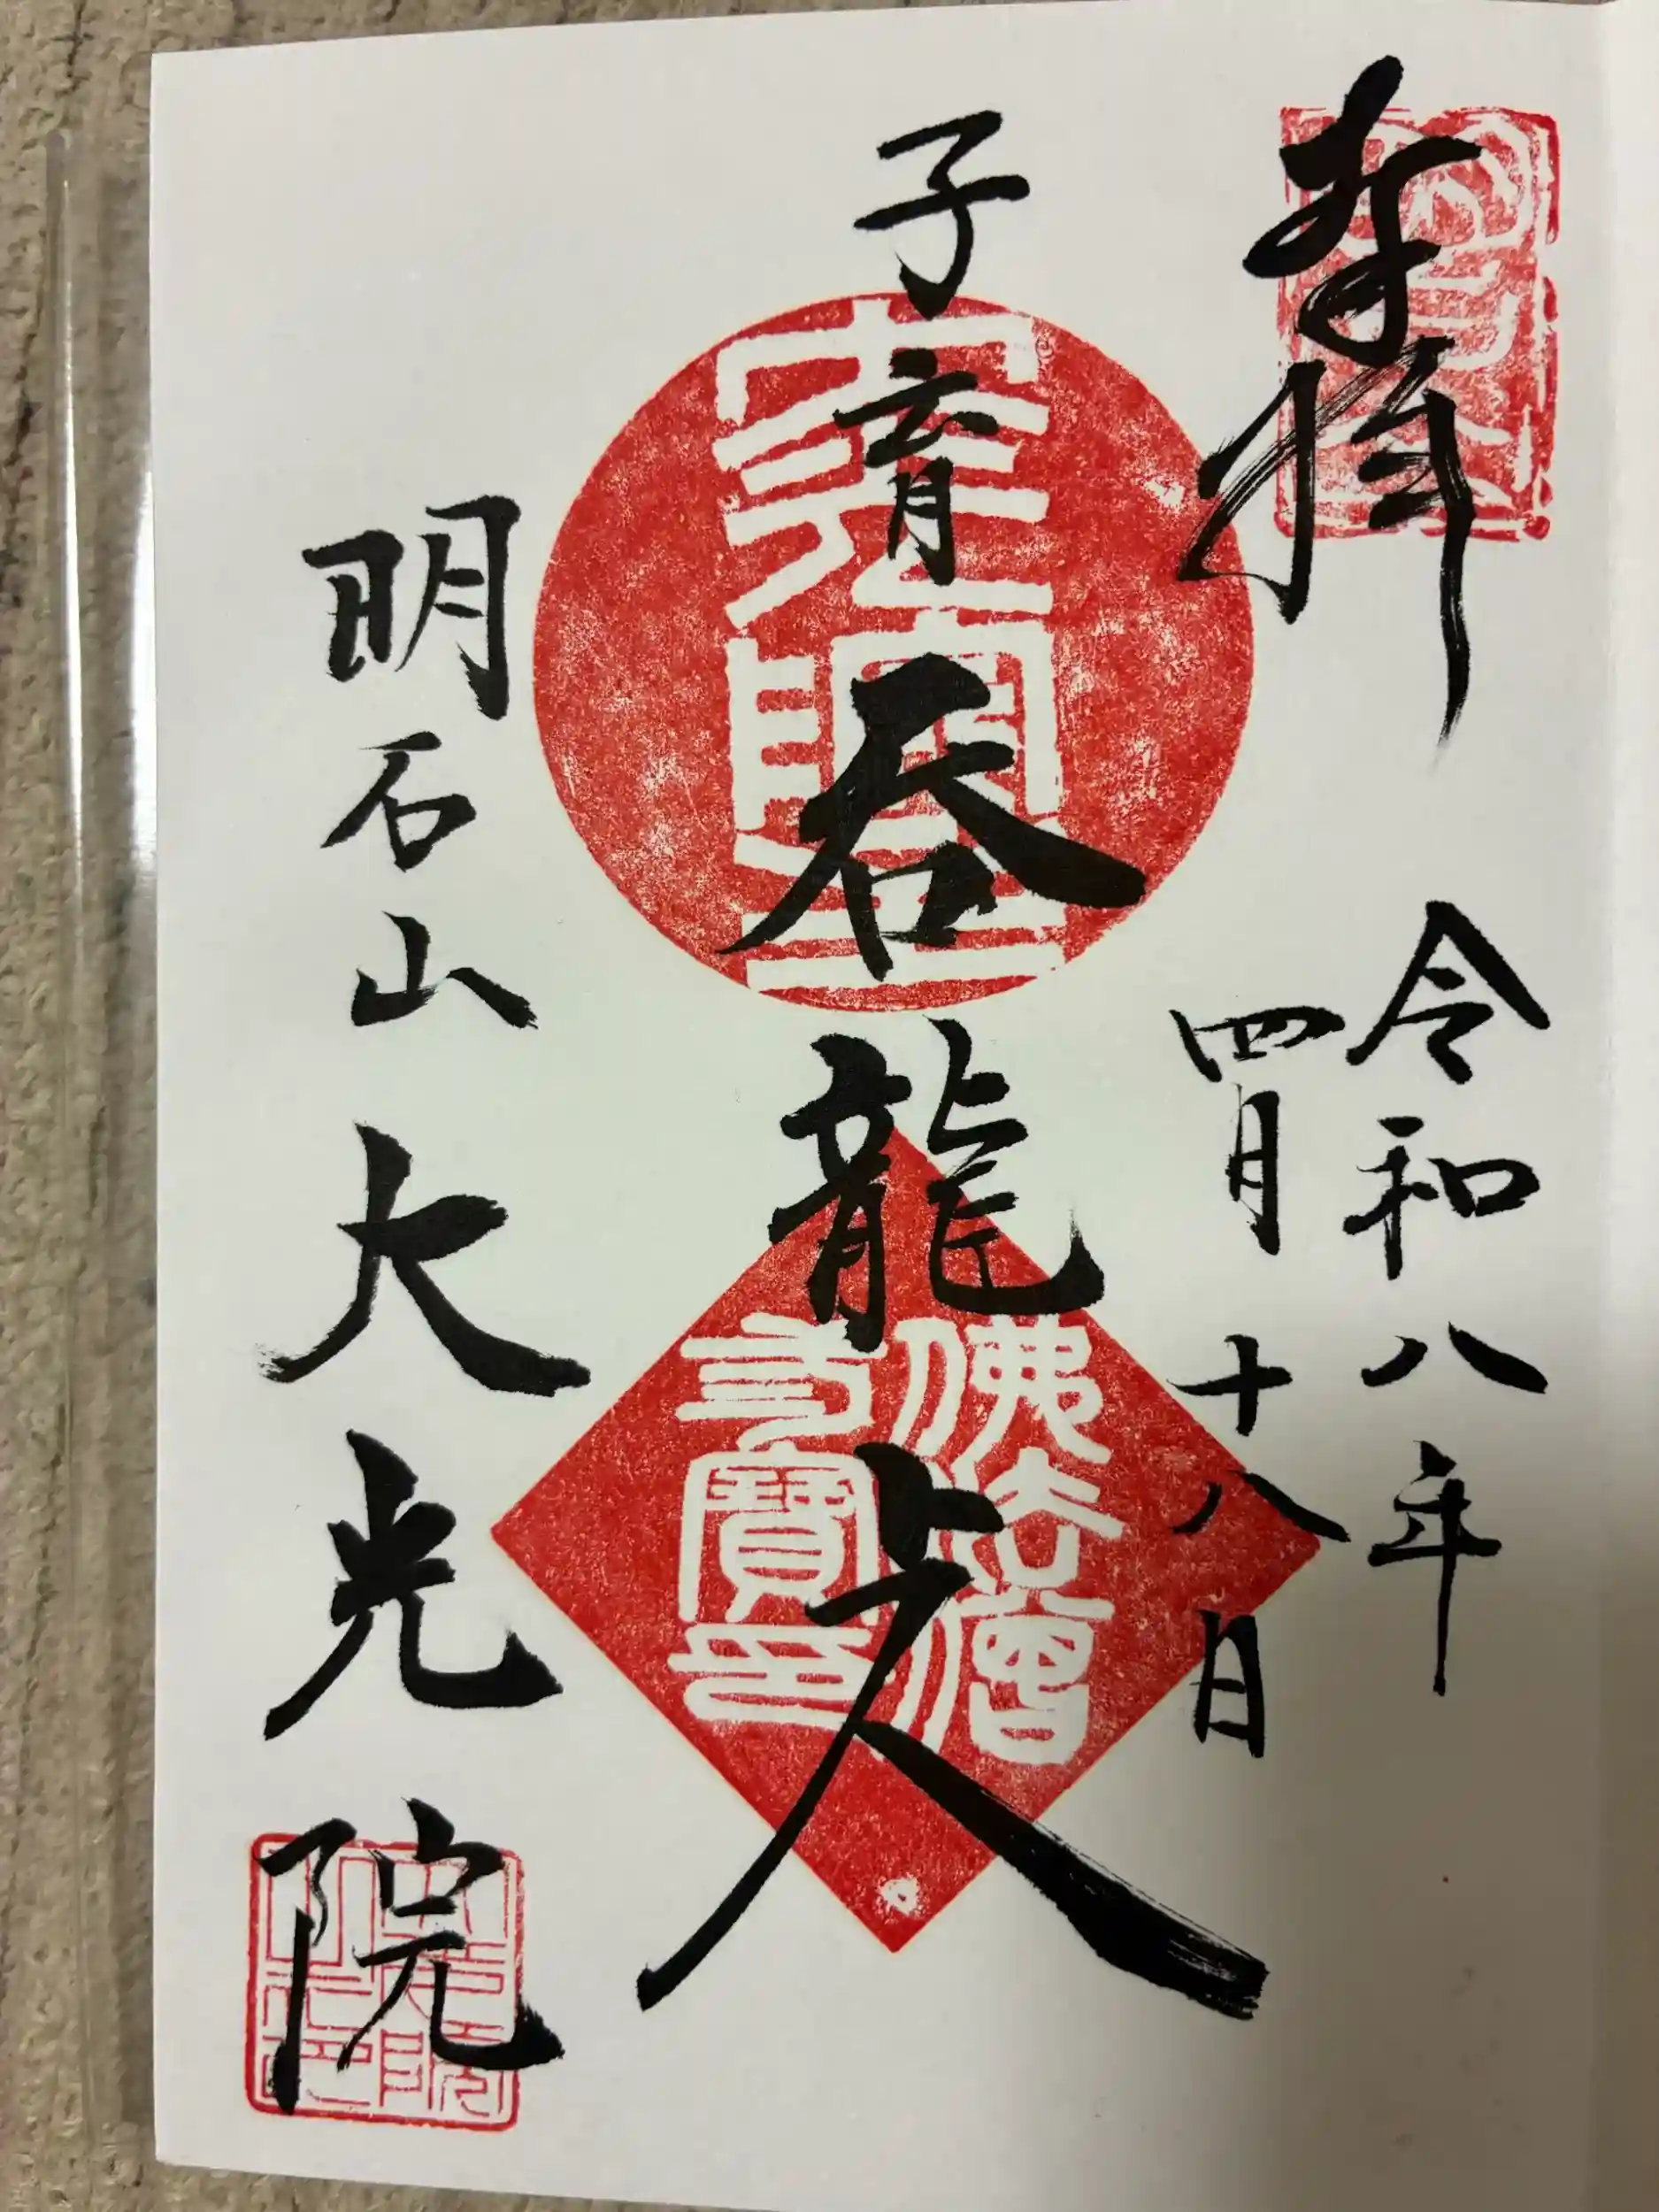 奉拝
令和八年
四月十八日
子育呑龍上人
佛法僧
寶印
明石山大光院